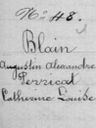 No 48.
Blain
Augustin Alexandre
Perricat
Catherine Louise